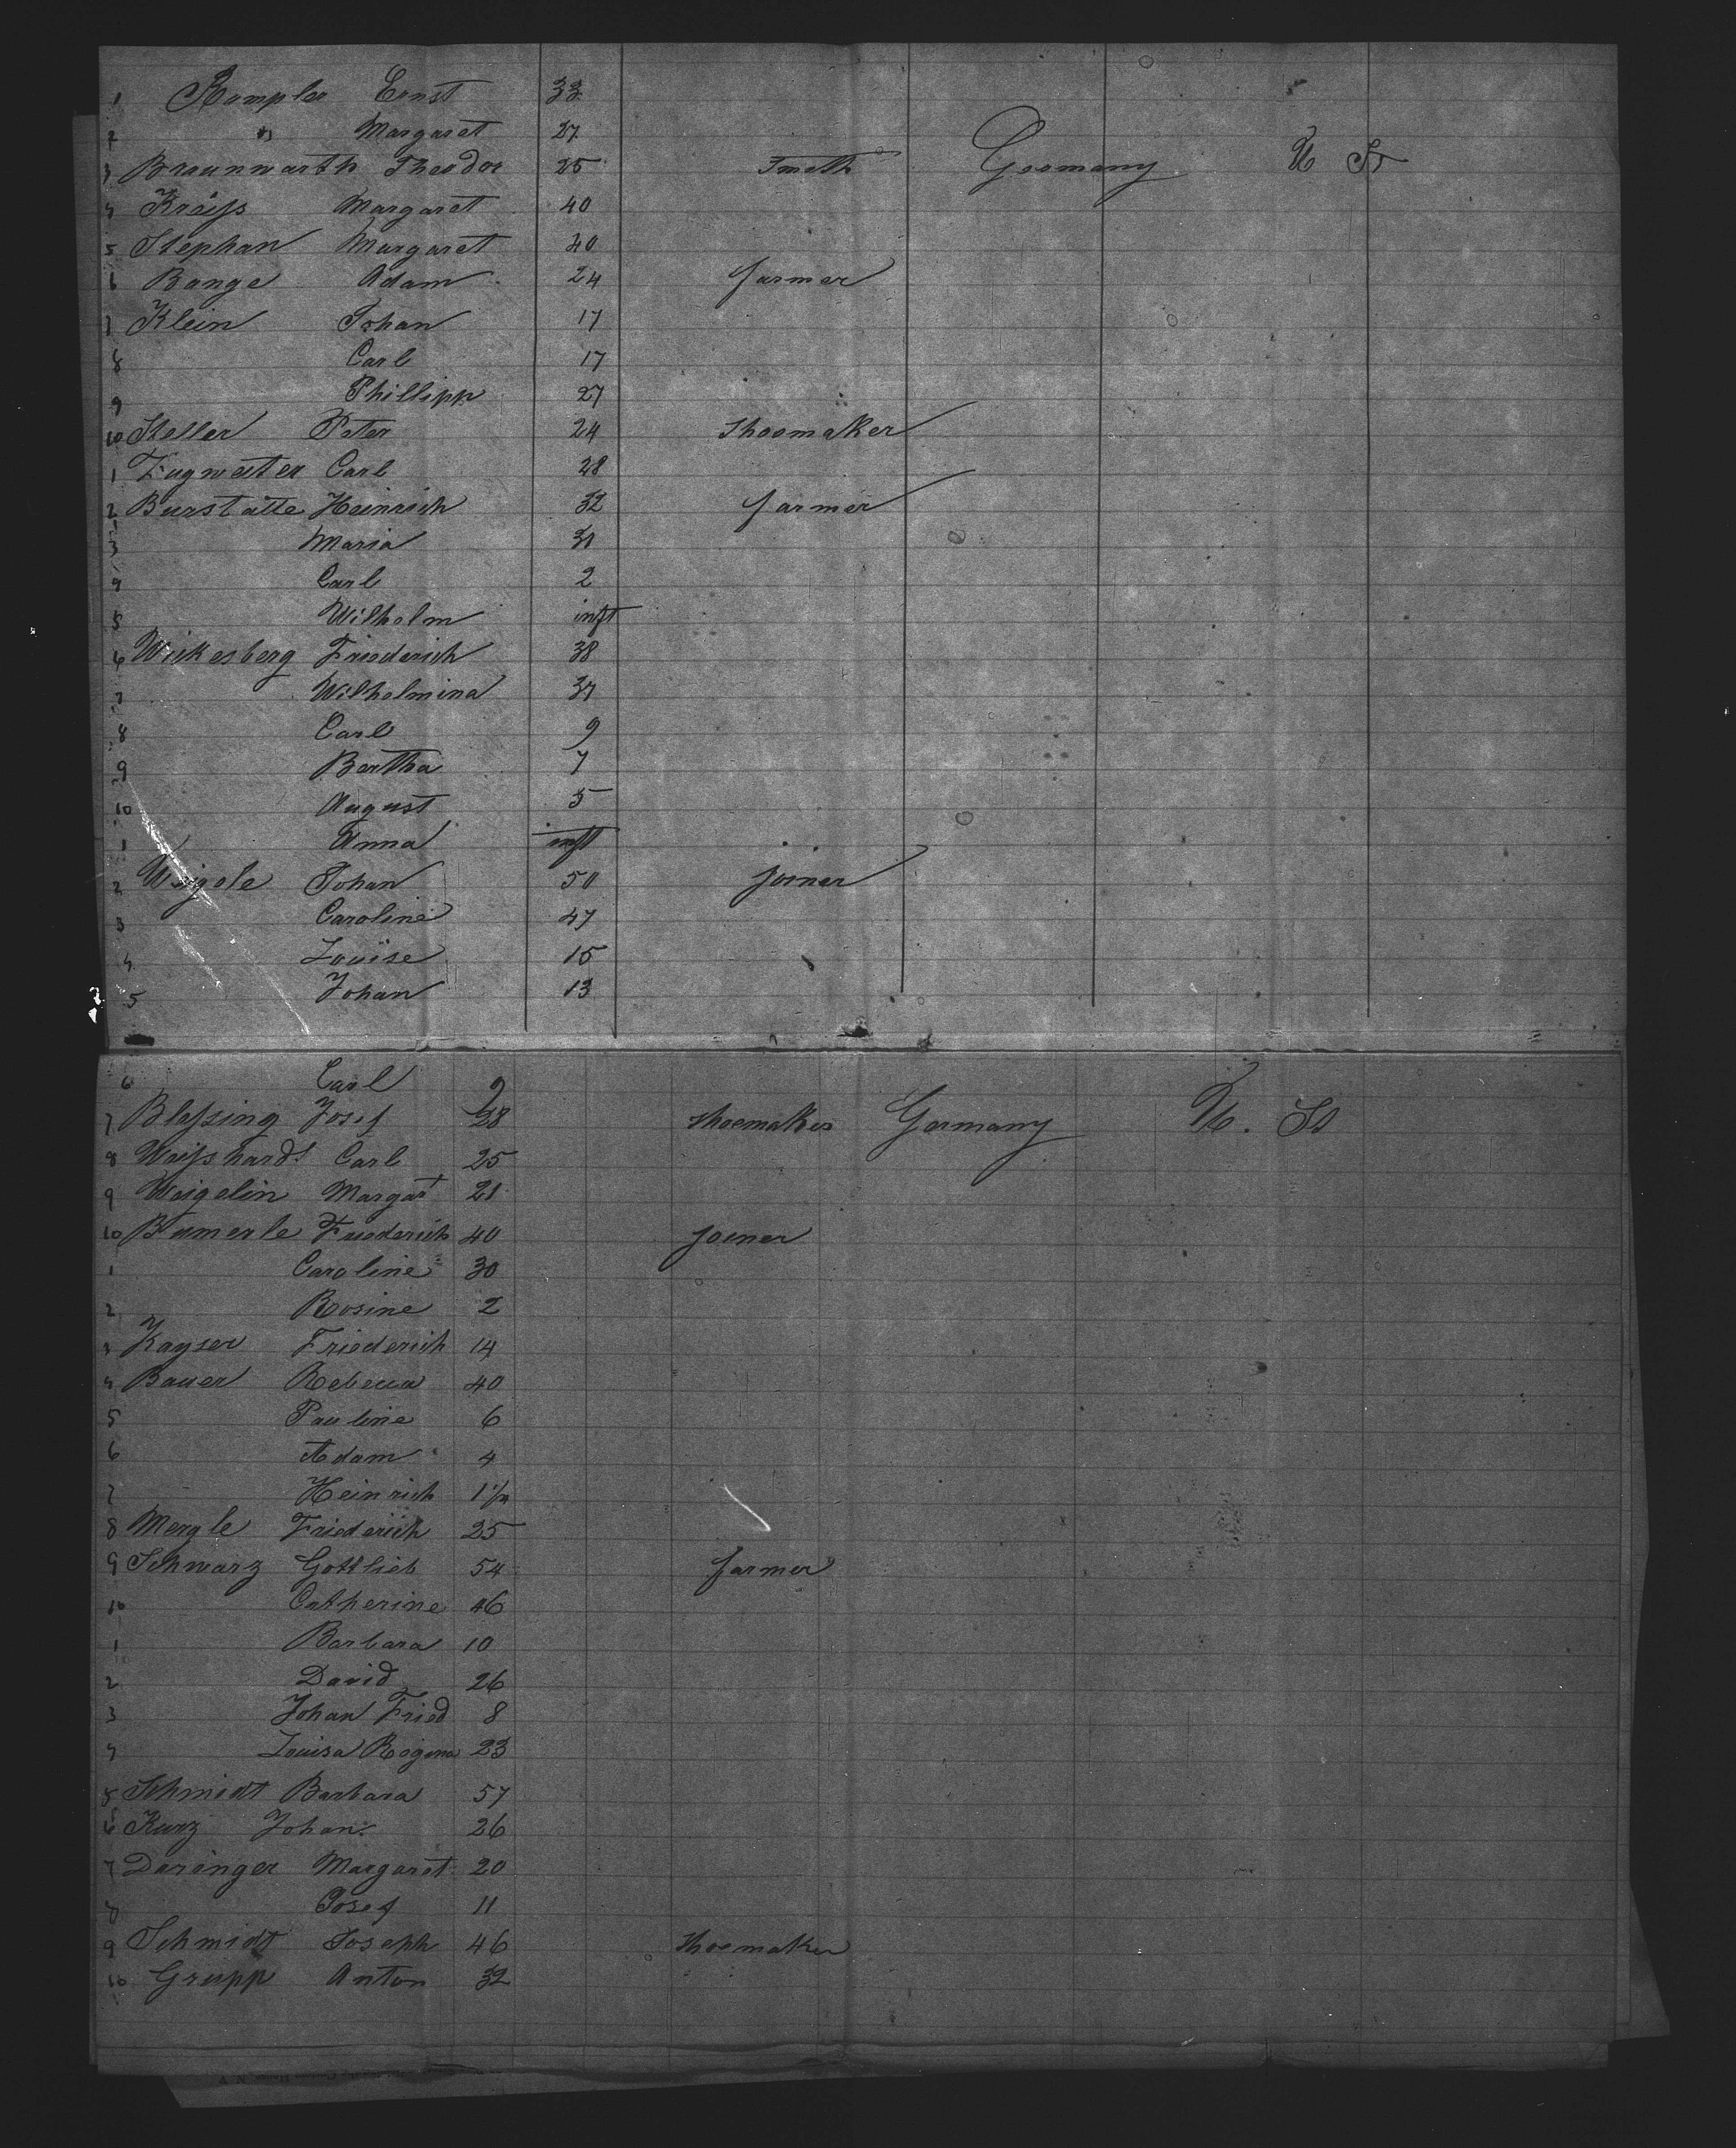 1 Rompler Ernst 33
2 " Margaret 27
3 Braunwarth Theodor 25 Smith Germany U St
4 Kreiſs Margaret 40
5 Stephan Margaret 40
6 Bange Adam 24 farmer
7 Klein Johan 17
8 Carl 17
9 Phillipp 27
10 Steller Peter 24 Shoemaker
1 Zugweiter Carl 28
2 Burstatte Heinrich 32 farmer
3 Maria 31
4 Carl 2
5 Wilhelm inft
6 Wickesberg Friederich 38
7 Wilhelmina 37
8 Carl 9
9 Bertha 7
10 August 5
1 Anna inft
2 Weigele Johan 50 joiner
3 Caroline 47
4 Louise 15
5 Johan 13
6 Carl 9
7 Bleſsing Josef 28 Shoemaker Germany U. St
8 Weiſshardt Carl 25
9 Weigelin Margart 21
10 Bumerle Friederich 40 joiner
1 Caroline 30
2 Rosine 2
3 Kayser Friederich 14
4 Bauer Rebecca 40
5 Pauline 6
6 Adam 4
7 Heinrich
8 Mergle Friederich 25
9 Schwarz Gottlieb 54 farmer
10 Catherine 46
1 Barbara 10
2 David 26
3 Johan Fried 8
4 Louisa Regina 23
5 Schmidt Barbara 57
6 Kurz Johan 26
7 Daringer Margaret 20
8 Josef 11
9 Schmidt Joseph 46 Shoemaker
10 Grupp Anton 32